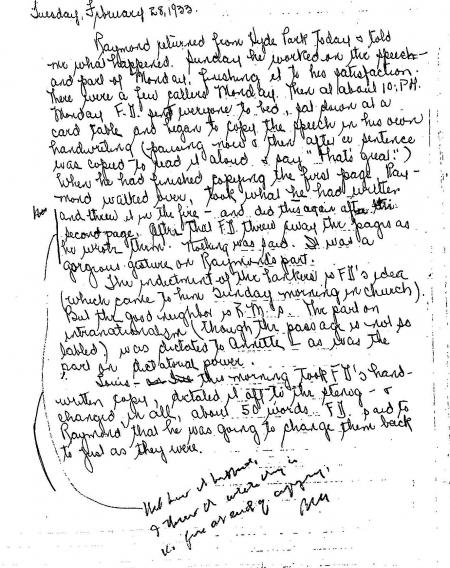 Tuesday, February 28, 1933.
Raymond returned from Hyde Park today & told
me what happened. Sunday he worked on the speech -
and part of Monday, finishing it to his satisfaction.
There were a few callers Monday. Then at about 10 P.M.
Monday F.D. sent everyone to bed, sat down at a
card table and began to copy the speech in his own
handwriting (pausing now & then after a sentence
was copied to read it aloud & say "That's great.")
When he had finished copying the first page, Ray-
mond walked over, took what he had written
and threw it in the fire - and did this again after the
second page. After that F.D. threw away the pages as
he wrote them. Nothing was said. It was a
gorgeous gesture on Raymond's part.
The indictment of the bankers is F.D.'s idea
(which came to him Sunday morning in church).
But the good neighbor is R.M.'s. The part on
intranationalism (though the passage is not so
labled) was dictated to Annette - as was the
part on dictatorial power.
Louis - this morning took F.D.'s hand-
written copy, dictated it off to the stenog - &
changed, in all, about 50 words. F.D. said to
Raymond that he was going to change them back
to just as they were.
Not how it happened,
I threw it whole thing in
the fire at end of copying.